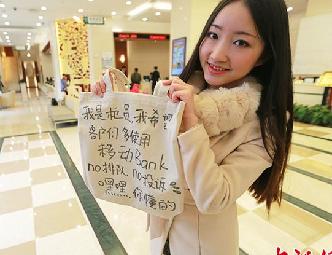 我是柜员,我希望
客户们多使用
移动Bank
no排队 no投诉
嘿嘿……你懂的